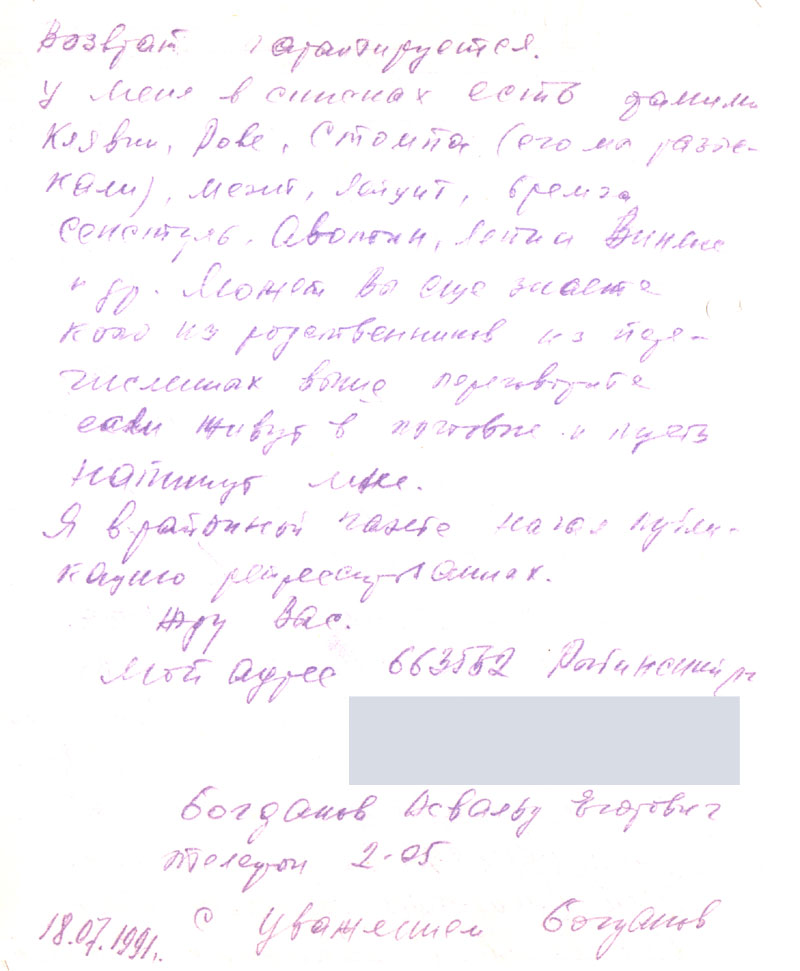 Возврат гарантируется.
У меня в списках есть фамилии
Клявин, Рове, Стомпа (его мы разыс-
кали), Межит, Якушт,
Сенстуль, Аболтин, Лепки
и др. Может Вы еще знаете
кого из родственников из пере-
численных выше переговорите
если живут в и пусть
напишут мне.
Я в районной газете начал публи-
кацию репрессированных.
Жду Вас.
Мой адрес 663552 Рыбинский р-н
Богданов Освальд Егорович
телефон 2-05
18.07.1991г. С уважением Богданов